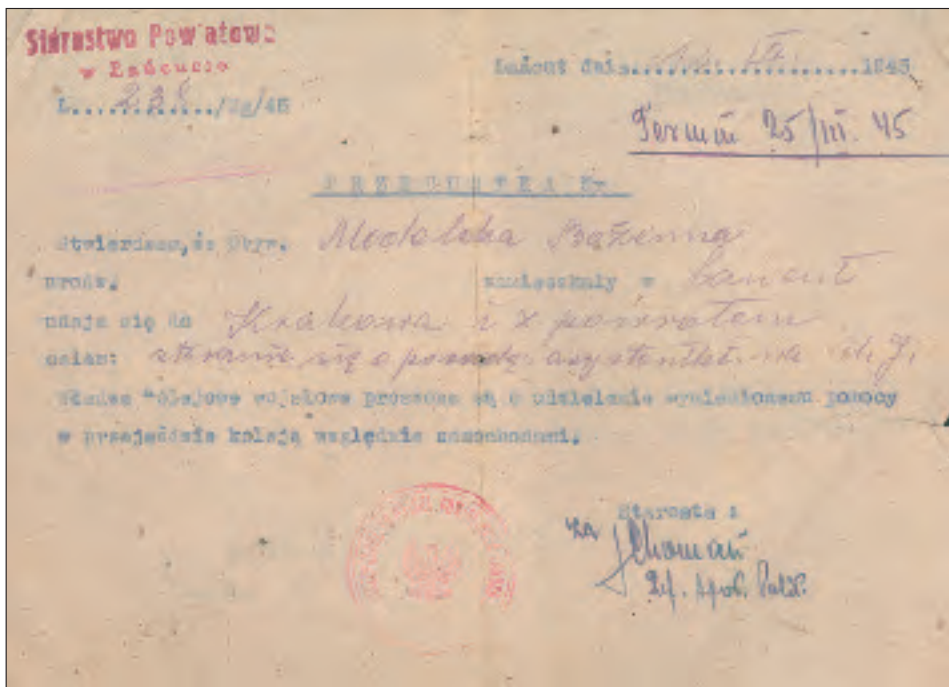 Starostwo Powiatowe
w Łańcucie
Łańcut dnia 1945
L. /45
Termin 25/III. 45
PRZEPUSTKA Nr.
Stwierdzam, że Obyw. Modelska Bożenna
urodz. zamieszkały w Łańcut
udaje się do Krakowa i z powrotem
celem: starania się o posadę asystentki na U. J.
Władze Kolejowe wojskowe proszone są o udzielenie wymienionemu pomocy
w przejeździe koleją względnie samochodami.
Starosta :
za